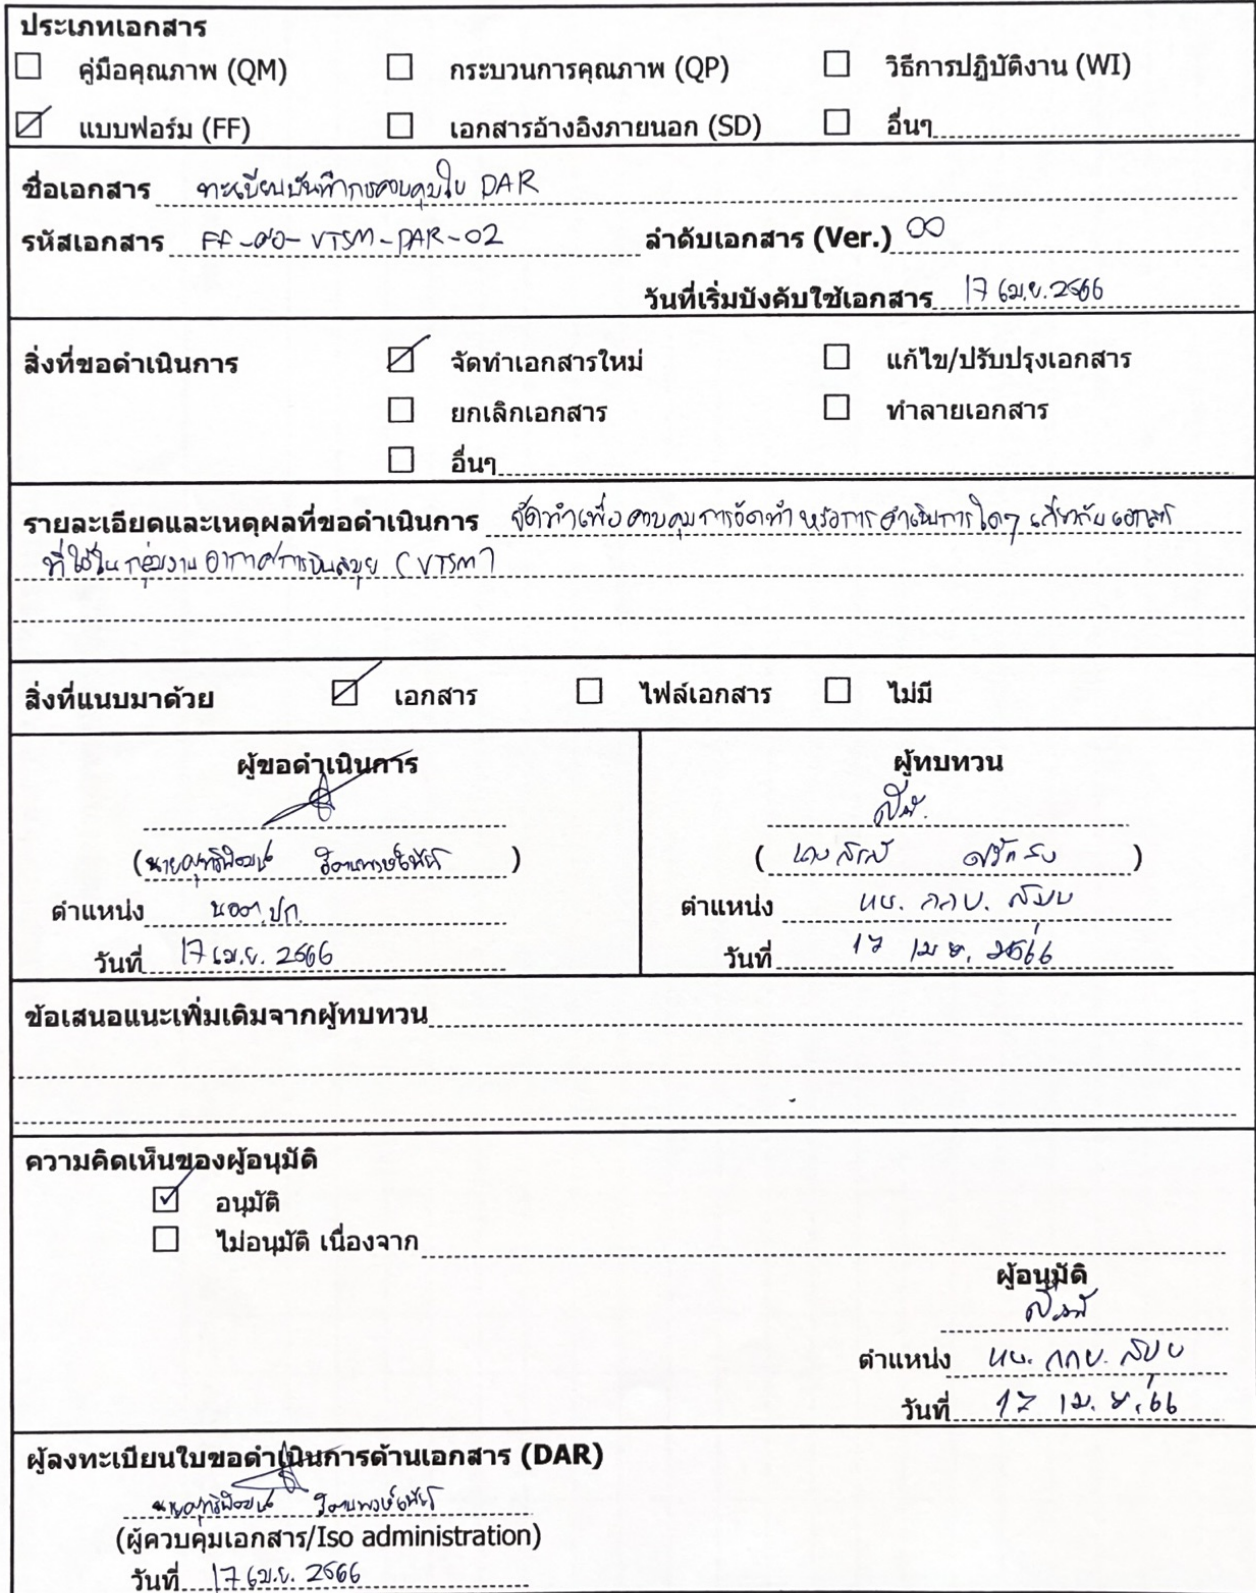 ประเภทเอกสาร
คู่มือคุณภาพ (QM) กระบวนการคุณภาพ (QP) วิธีการปฏิบัติงาน (WI)
แบบฟอร์ม (FF) เอกสารอ้างอิงภายนอก (SD) อื่นๆ
ชื่อเอกสาร ทะเบียนบันทึกการควบคุมใบ DAR
รหัสเอกสาร FF-ตอ-VTSM-DAR-02 ลำดับเอกสาร (Ver.) 00
วันที่เริ่มบังคับใช้เอกสาร 17 เม.ย. 2566
สิ่งที่ขอดำเนินการ จัดทำเอกสารใหม่ แก้ไข/ปรับปรุงเอกสาร
ยกเลิกเอกสาร ทำลายเอกสาร
อื่นๆ
รายละเอียดและเหตุผลที่ขอดำเนินการ จัดทำเพื่อควบคุมการจัดทำ หรือการดำเนินการใดๆ เกี่ยวกับเอกสาร
ที่ใช้ในกลุ่มงานอากาศการบินสมุย (VTSM)
สิ่งที่แนบมาด้วย เอกสาร ไฟล์เอกสาร ไม่มี
ผู้ขอดำเนินการ ผู้ทบทวน
(นาย ) ( )
ตำแหน่ง นอต.ปก. ตำแหน่ง
วันที่ 17 เม.ย. 2566 วันที่ 17 เม.ย. 2566
ข้อเสนอแนะเพิ่มเติมจากผู้ทบทวน
ความคิดเห็นของผู้อนุมัติ
อนุมัติ
ไม่อนุมัติ เนื่องจาก
ผู้อนุมัติ
ตำแหน่ง
วันที่ 17 เม.ย. 66
ผู้ลงทะเบียนใบขอดำเนินการด้านเอกสาร (DAR)
นาย
(ผู้ควบคุมเอกสาร/Iso administration)
วันที่ 17 เม.ย. 2566